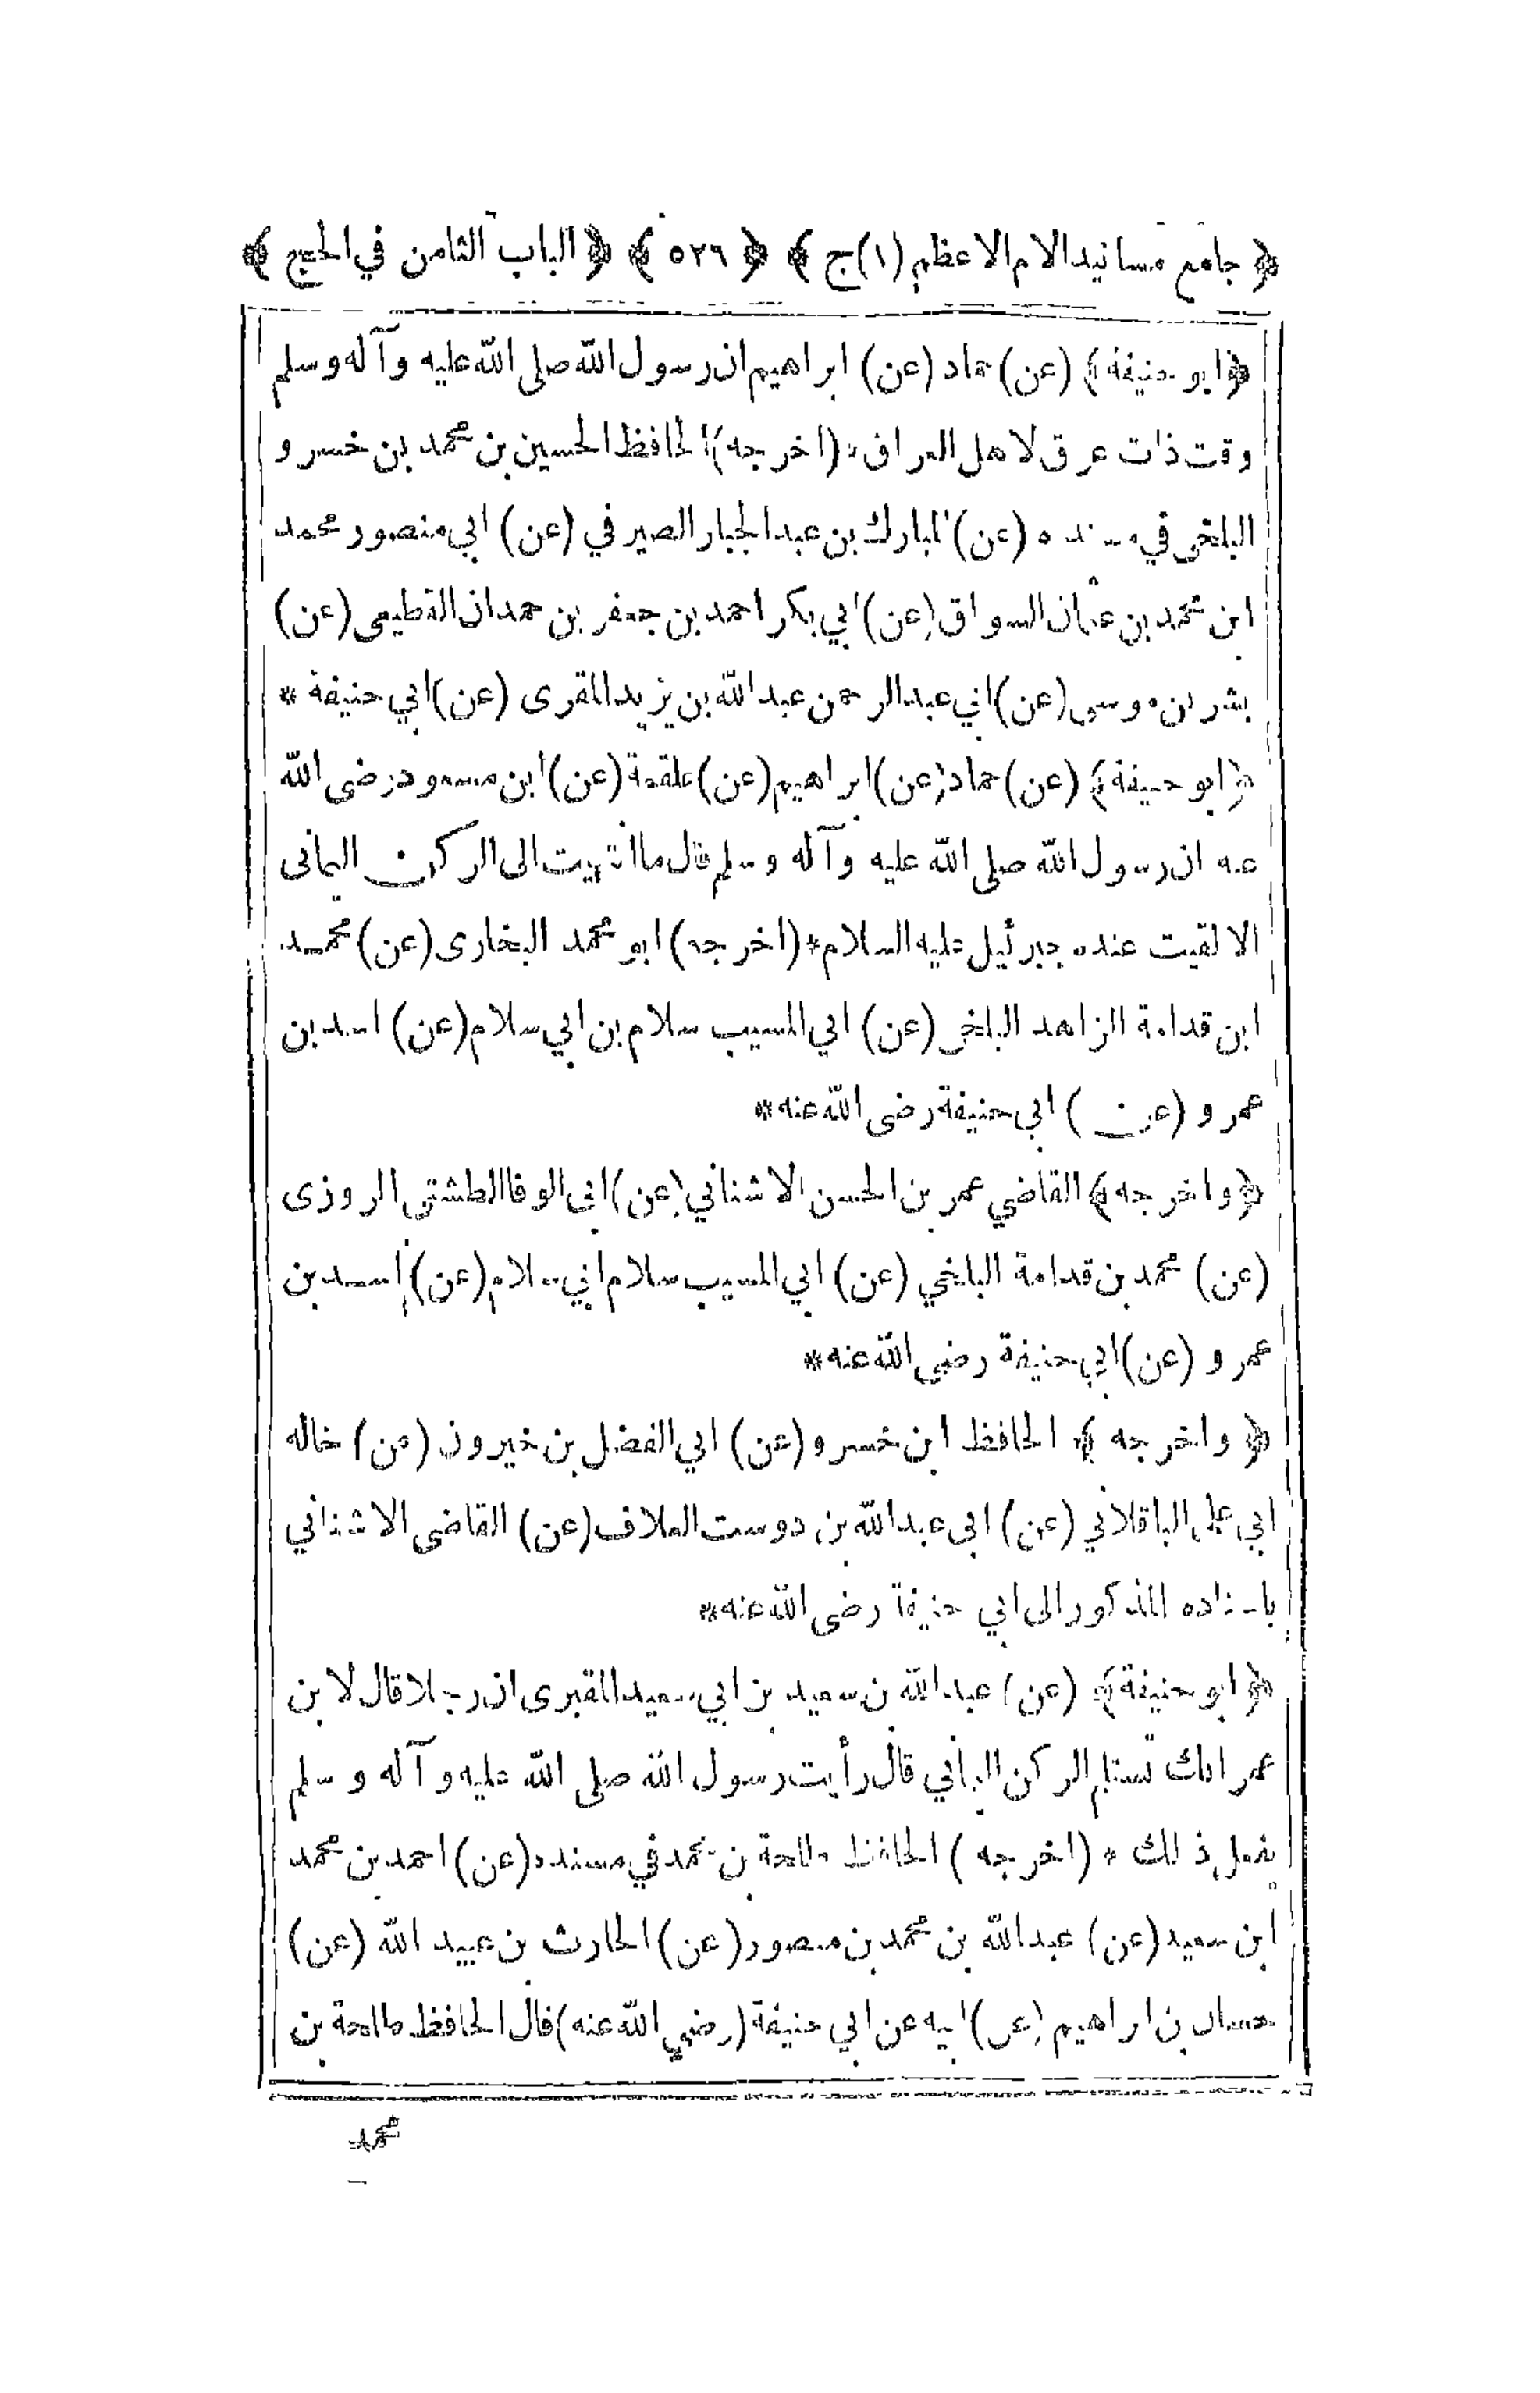 ﴿ جامع مسانيد الامام الاعظم (١) ج ﴾ ﴿ ٥٢٦ ﴾ ﴿ الباب الثامن في الحج ﴾
﴿ ابو حنيفة ﴾ (عن) حماد (عن) ابراهيم ان رسول الله صلى الله عليه وآله وسلم
وقت ذات عرق لاهل العراق * (اخرجه) الحافظ الحسين بن محمد بن خسرو
البلخى في مسنده (عن) المبارك بن عبد الجبار الصير في (عن) ابي منصور محمد
ابن محمد بن عثمان السواق (عن) ابي بكر احمد بن جعفر بن حمدان القطيعى (عن)
بشر بن موسى (عن) ابي عبد الرحمن عبد الله بن يزيد المقرى (عن) ابي حنيفة *
﴿ ابو حنيفة ﴾ (عن) حماد (عن) ابراهيم (عن) علقمة (عن) ابن مسعود رضى الله
عنه ان رسول الله صلى الله عليه وآله وسلم قال ما انتهيت الى الركن اليمانى
الا لقيت عنده جبرئيل عليه السلام * (اخرجه) ابو محمد البخارى (عن) محمد
ابن قدامة الزاهد البلخى (عن) ابي المسيب سلام بن ابي سلام (عن) اسد بن
عمرو (عن) ابي حنيفة رضى الله عنه *
﴿ واخرجه ﴾ القاضي عمر بن الحسن الاشناني (عن) ابى الوفا الطشتى الروزى
(عن) محمد بن قدامة البلخي (عن) ابي المسيب سلام ابي سلام (عن) اسد بن
عمرو (عن) ابي حنيفة رضى الله عنه *
﴿ واخرجه ﴾ الحافظ ابن خسرو (عن) ابي الفضل بن خيرون (عن) خاله
ابي على الباقلاني (عن) ابى عبد الله بن دوست العلاف (عن) القاضى الاشناني
باسناده المذكور الى ابي حنيفة رضى الله عنه *
﴿ ابو حنيفة ﴾ (عن) عبد الله بن سعيد بن ابي سعيد المقبرى ان رجلا قال لا بن
عمر انك تستلم الركن اليماني قال رأيت رسول الله صلى الله عليه وآله وسلم
يفعل ذلك * (اخرجه) الحافظ طلحة بن محمد في مسنده (عن) احمد بن محمد
ابن سعيد (عن) عبد الله بن محمد بن منصور (عن) الحارث بن عبيد الله (عن)
حسان بن ابراهيم (عن) ابيه عن ابي حنيفة (رضي الله عنه) قال الحافظ طلحة بن
محمد